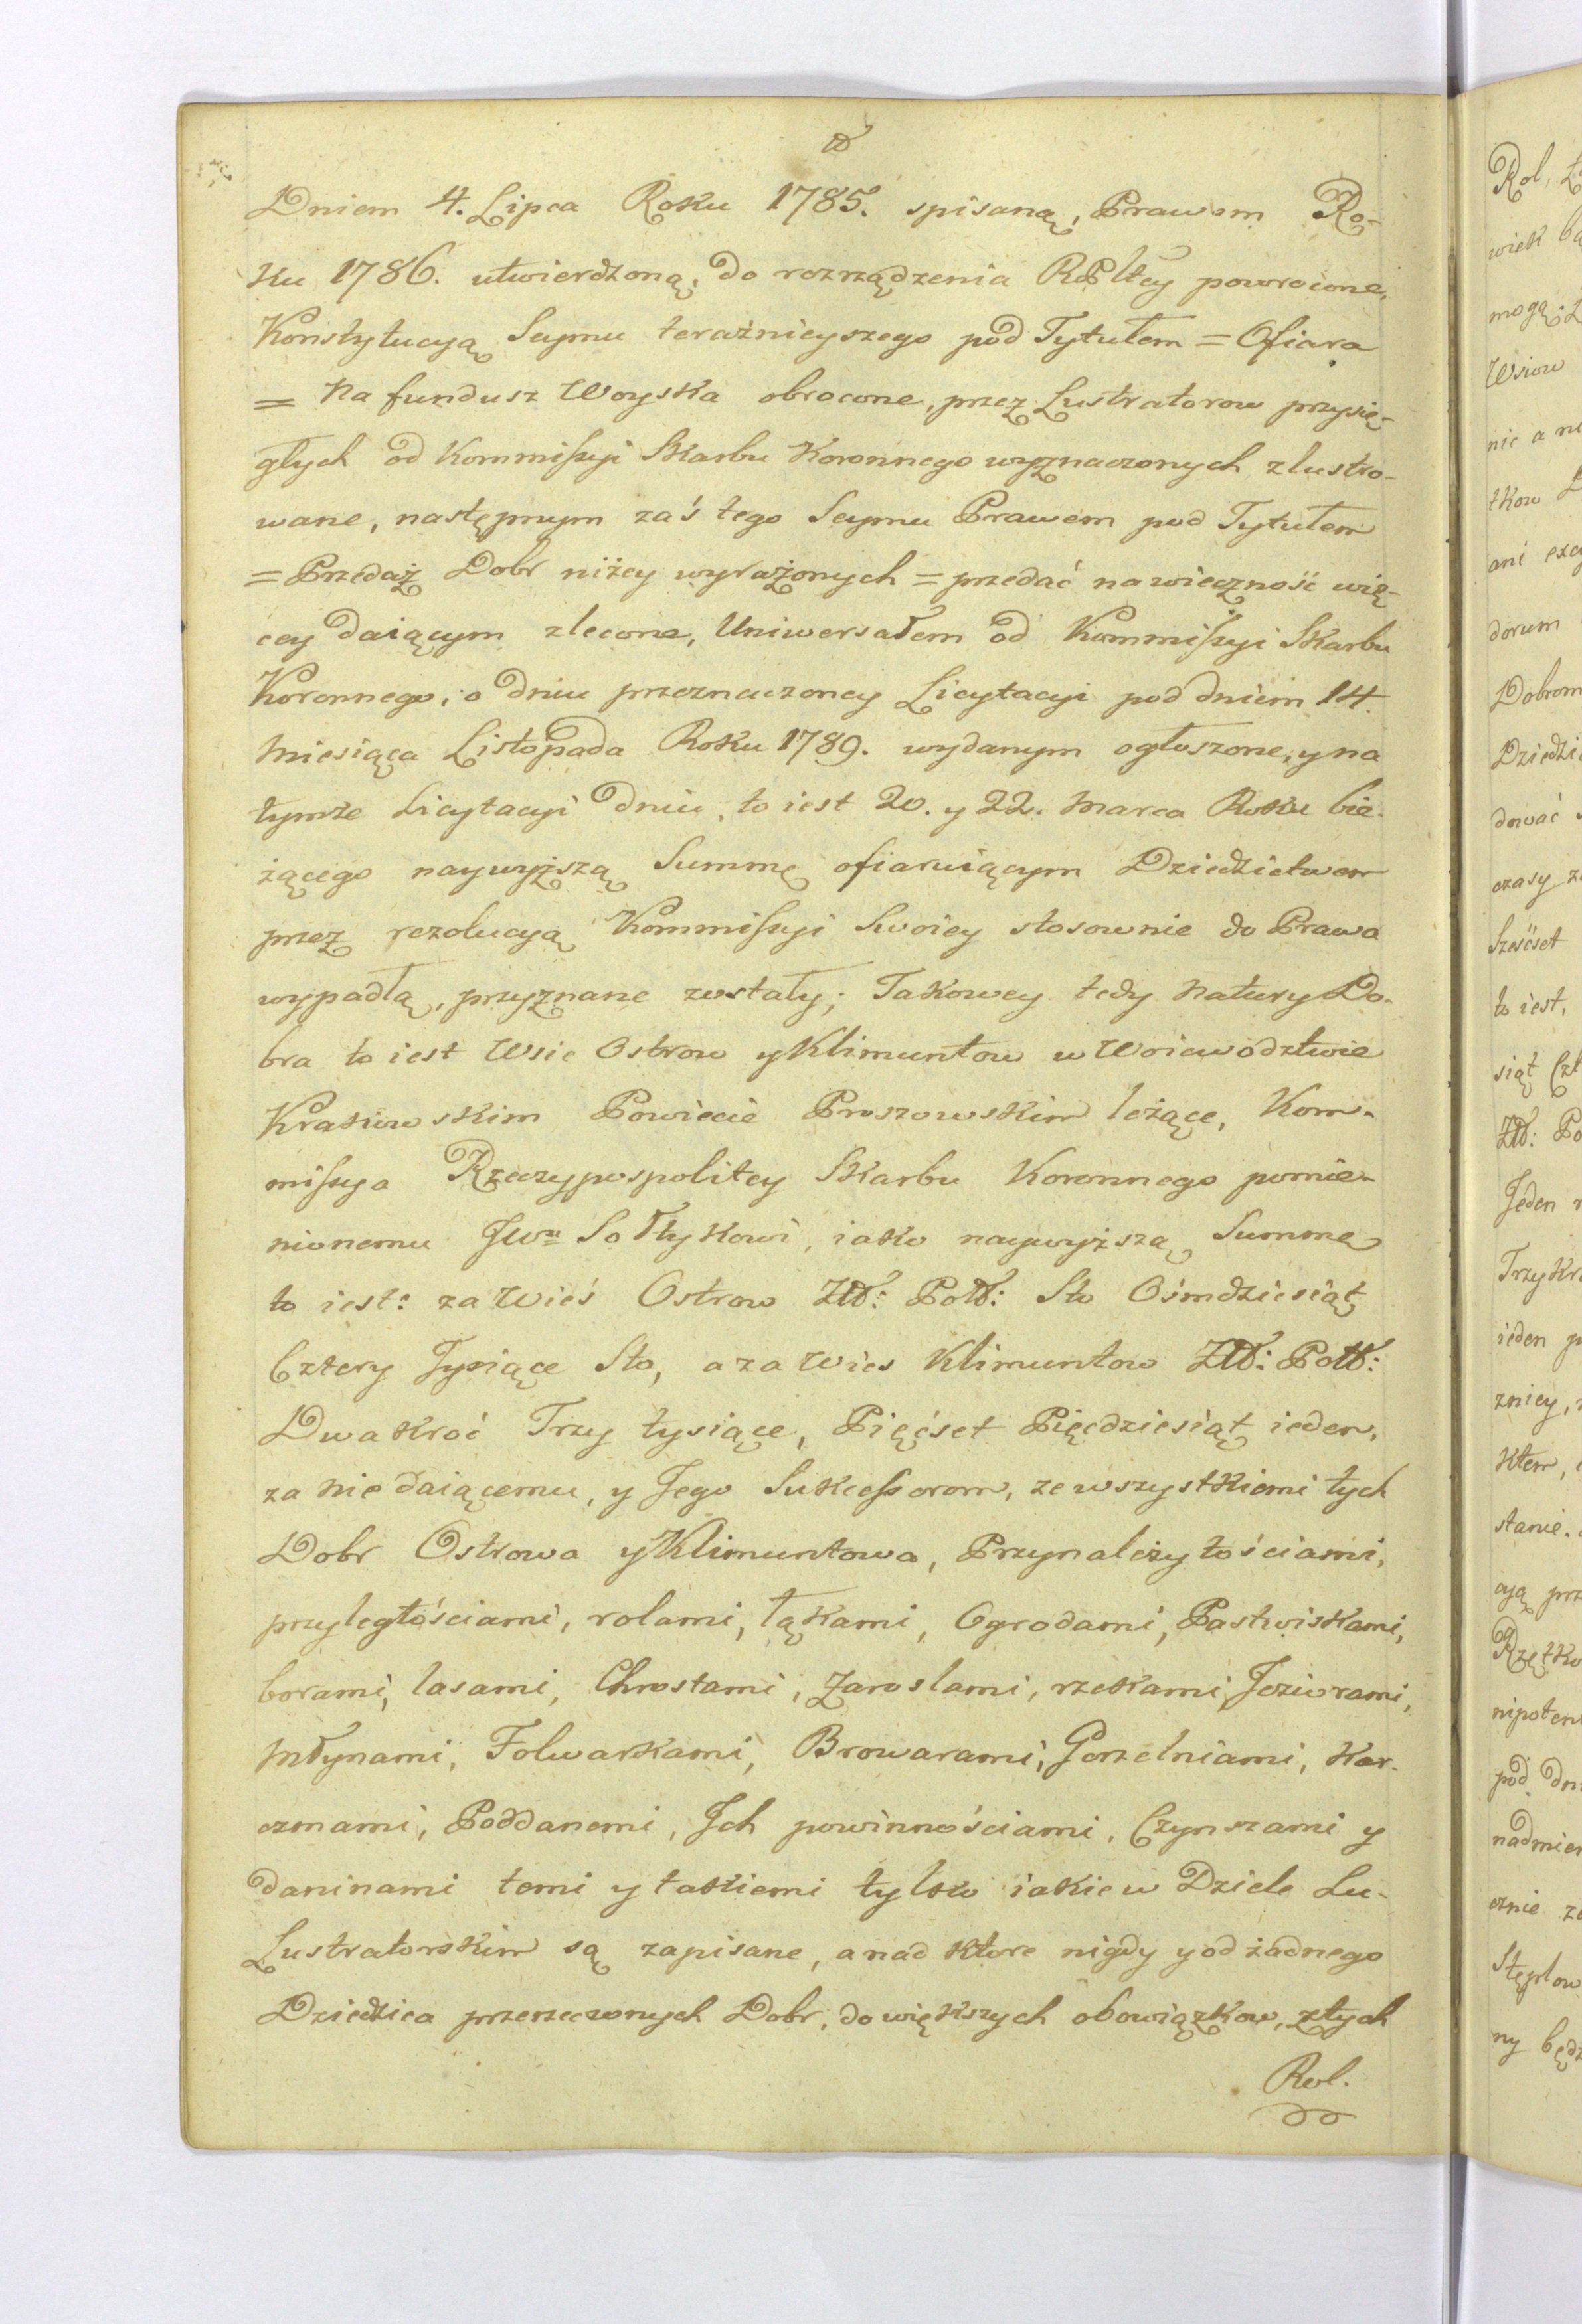 Dniem 4. Lipca Roku 1785. spisaną, Prawem Ro-
ku 1786. utwierdzoną, do rozrządzenia RPltey powrocone,
Konstytucyą Seymu teraźnieyszego pod Tytułem = Ofiara
= na fundusz Woyska obrocone, przez Lustratorow przysię-
głych od Kommissyi Skarbu Koronnego wyznaczonych zlustro-
wane, następnym zaś tego Seymu Prawem pod Tytułem
= Przedaż Dobr niżey wyrażonych = przedać na wieczność wię-
cey daiącym zlecone, Uniwersałem od Kommissyi Skarbu
Koronnego, o dniu przeznaczoney Licytacyi pod dniem 14.
Miesiąca Listopada Roku 1789. wydanym ogłoszone, y na
tymże Licytacyi dniu, to iest 20. y 22. Marca Roku bie-
żącego naywyższą Summę ofiaruiącym Dziedzictwem
przez rezolucyą Kommissyi Swoiey stosownie do Prawa
wypadłą, przyznane zostały; Takowey tedy natury Do-
bra to iest Wsie Ostrow y Klimuntow w Woiewodztwie
Krakowskim Powiecie Proszowskim leżące, Kom-
missya Rzeczypospolitey Skarbu Koronnego pomie-
nionemu JWu Sołtykowi, iako naywyższą Summę
to iest: za Wieś Ostrow Złł: Poll: Sto Ośmdziesiąt
Cztery Tysiące Sto, a za Wies Klimuntow Złł: Poll:
Dwakroć Trzy tysiące, Pięćset Pięcdziesiąt ieden,
za nie daiącemu, y Jego Sukcessorom, ze wszystkiemi tych
Dobr Ostrowa y Klimuntowa, Przynależytościami,
przyległościami, rolami, łąkami, Ogrodami, Pastwiskami,
borami, lasami, Chrostami, Zaroslami, rzekami, Jeziorami,
Młynami, Folwarkami, Browarami, Gorzelniami, Kar-
czmami, Poddanemi, Ich powinnościami, Czynszami y
daninami temi y takiemi tylko iakie w Dziele Lu-
Lustratorskim są zapisane, a nad ktore nigdy y od żadnego
Dziedzica przerzeczonych Dobr, do większych obowiązkow, z tych
Rol.